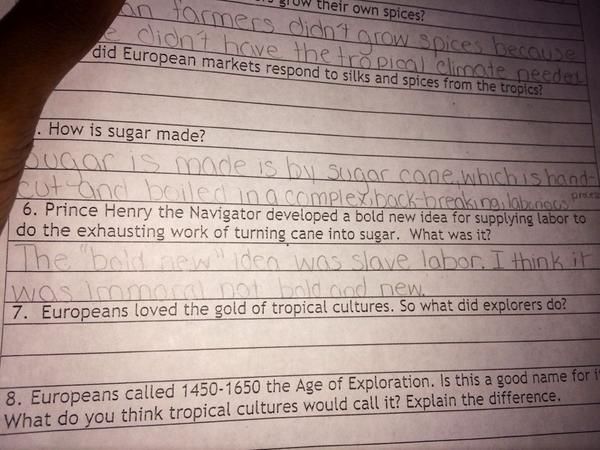 grow their own spices?
an farmers didn't grow spices because
e didn't have the tropical climate needed
did European markets respond to silks and spices from the tropics?
. How is sugar made?
Sugar is made is by sugar cane, which is hand-
cut and boiled in a complex, back-breaking, laborious process
6. Prince Henry the Navigator developed a bold new idea for supplying labor to
do the exhausting work of turning cane into sugar. What was it?
The "bold new" idea was slave labor. I think it
was immoral not bold and new.
7. Europeans loved the gold of tropical cultures. So what did explorers do?
8. Europeans called 1450-1650 the Age of Exploration. Is this a good name for i
What do you think tropical cultures would call it? Explain the difference.